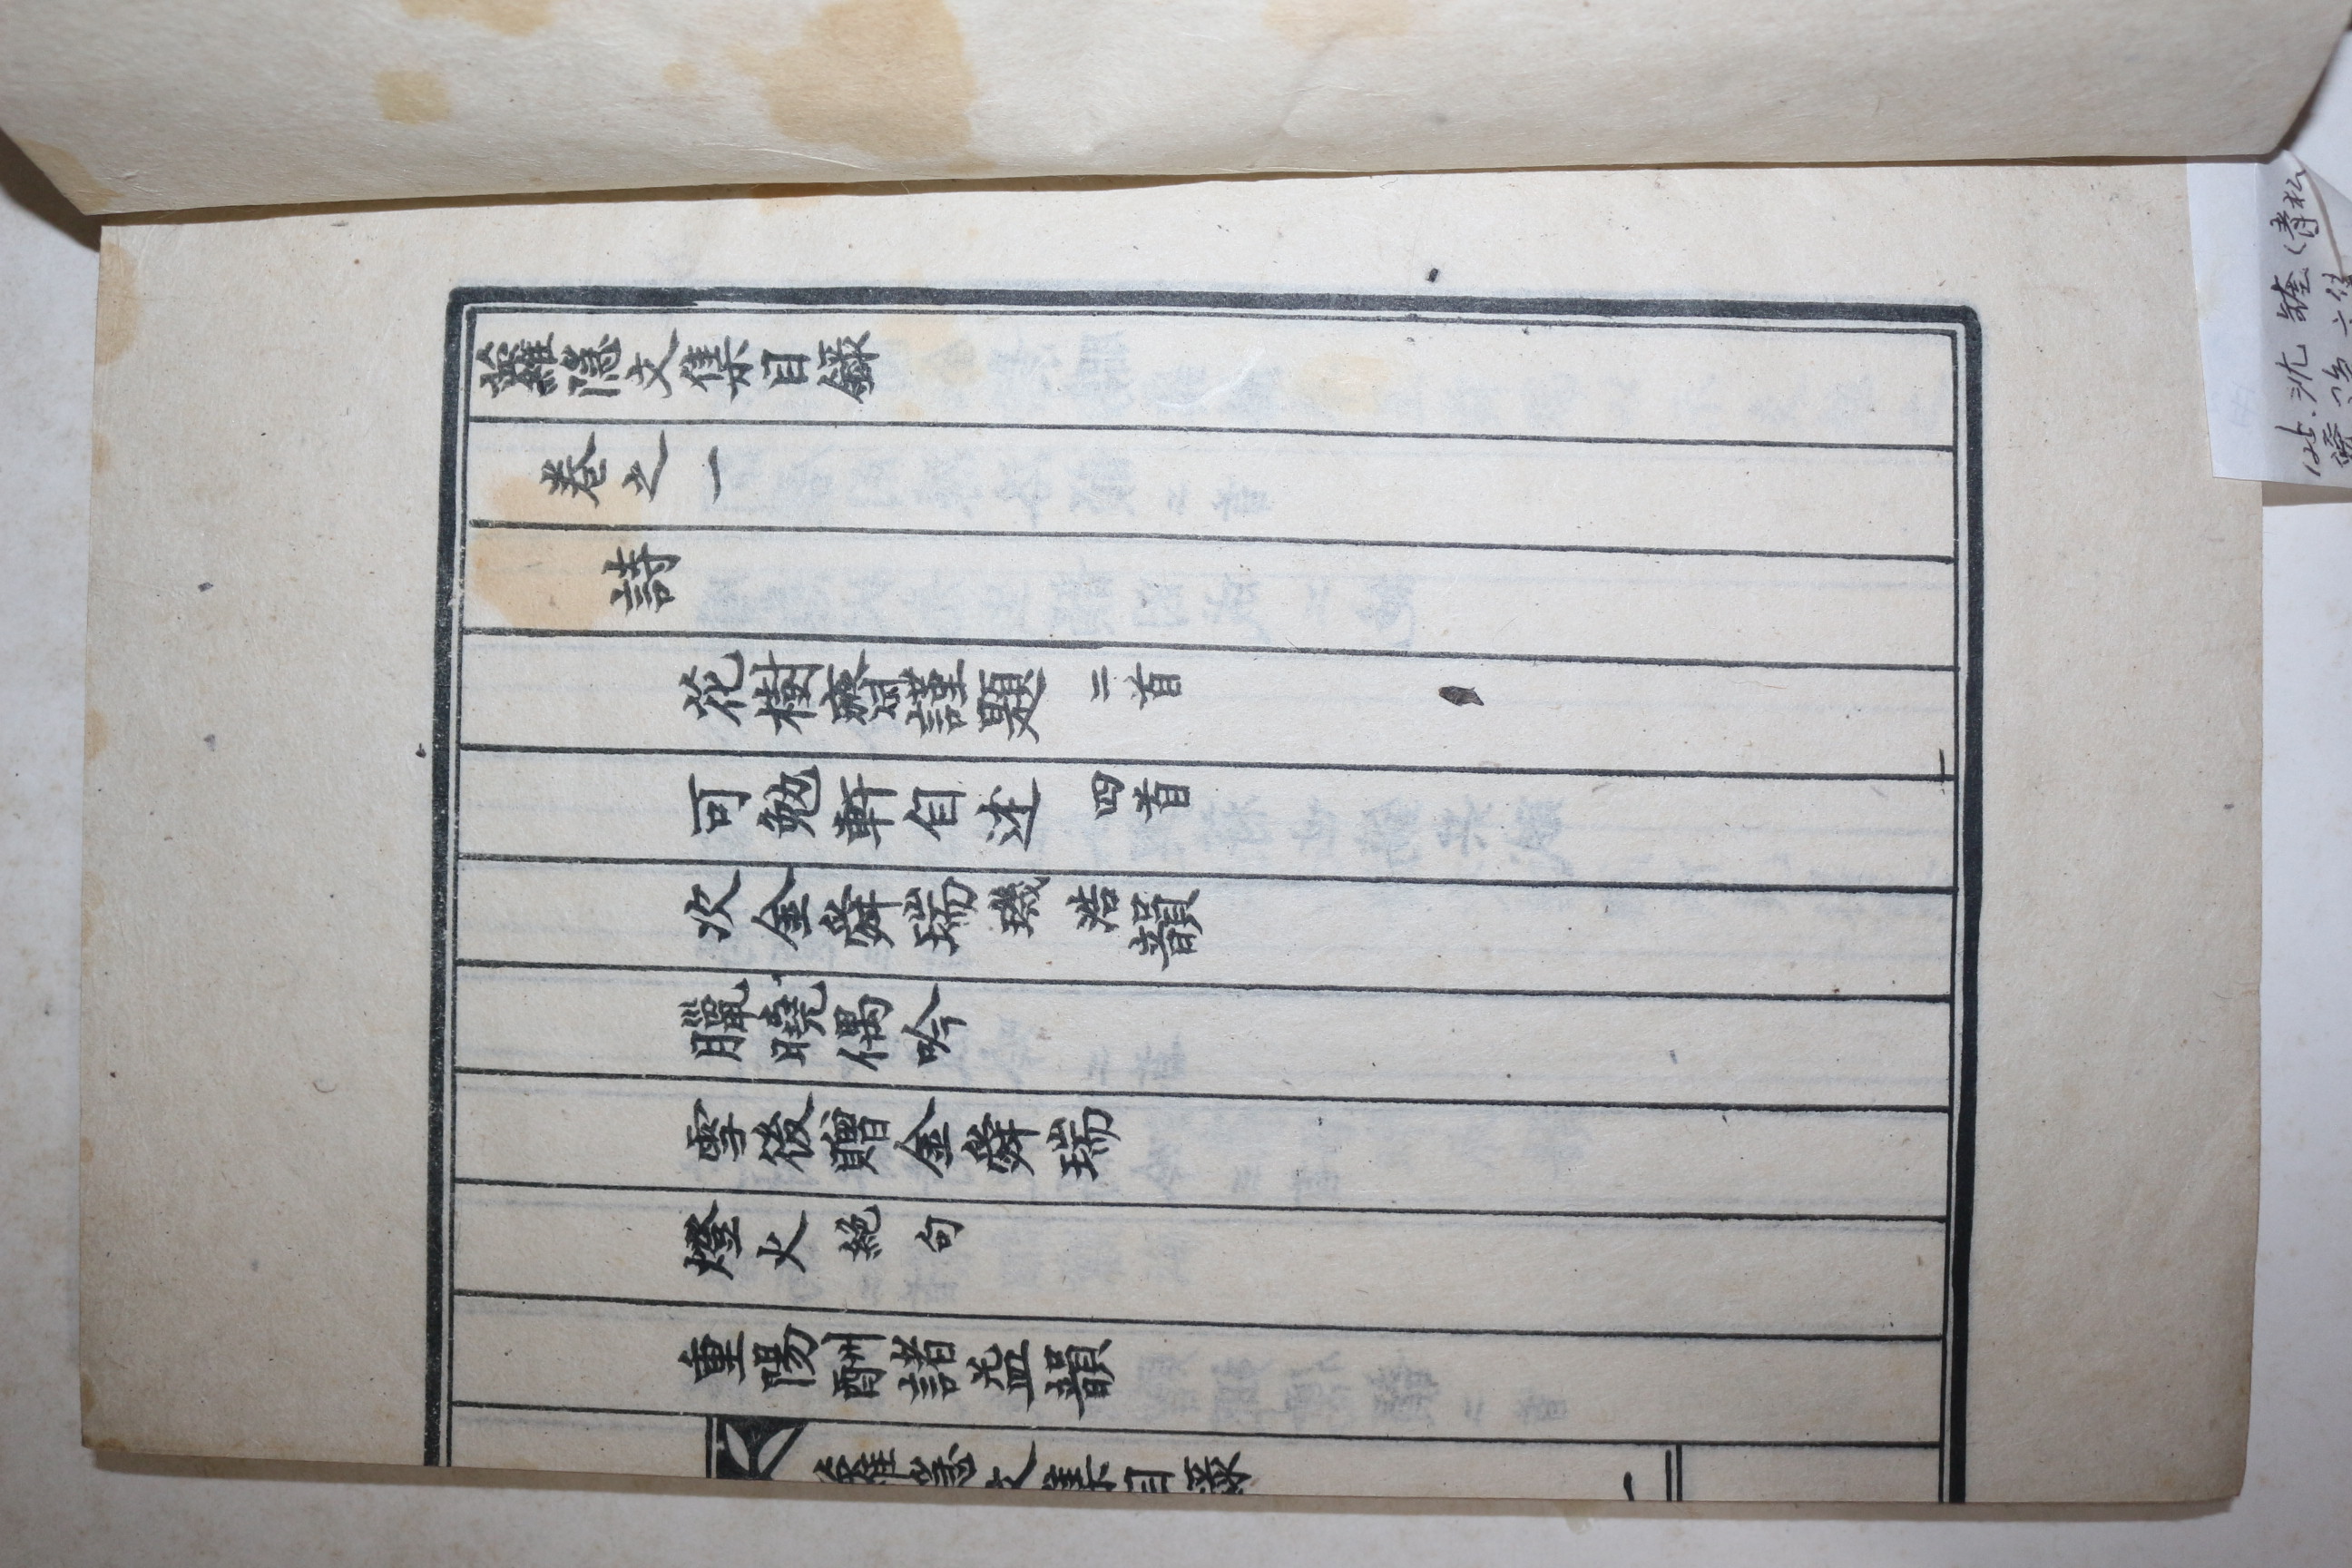 蘿隱文集目錄
卷之一
詩
花樹齋謹題 二首
可勉軒自述 四首
次金舜瑞 璣浩 韻
臘曉偶吟
雪後贈金舜瑞
燈火 絕句
重陽酬諸益韻
蘿隱文集目錄
一
125. 沈 (靑松